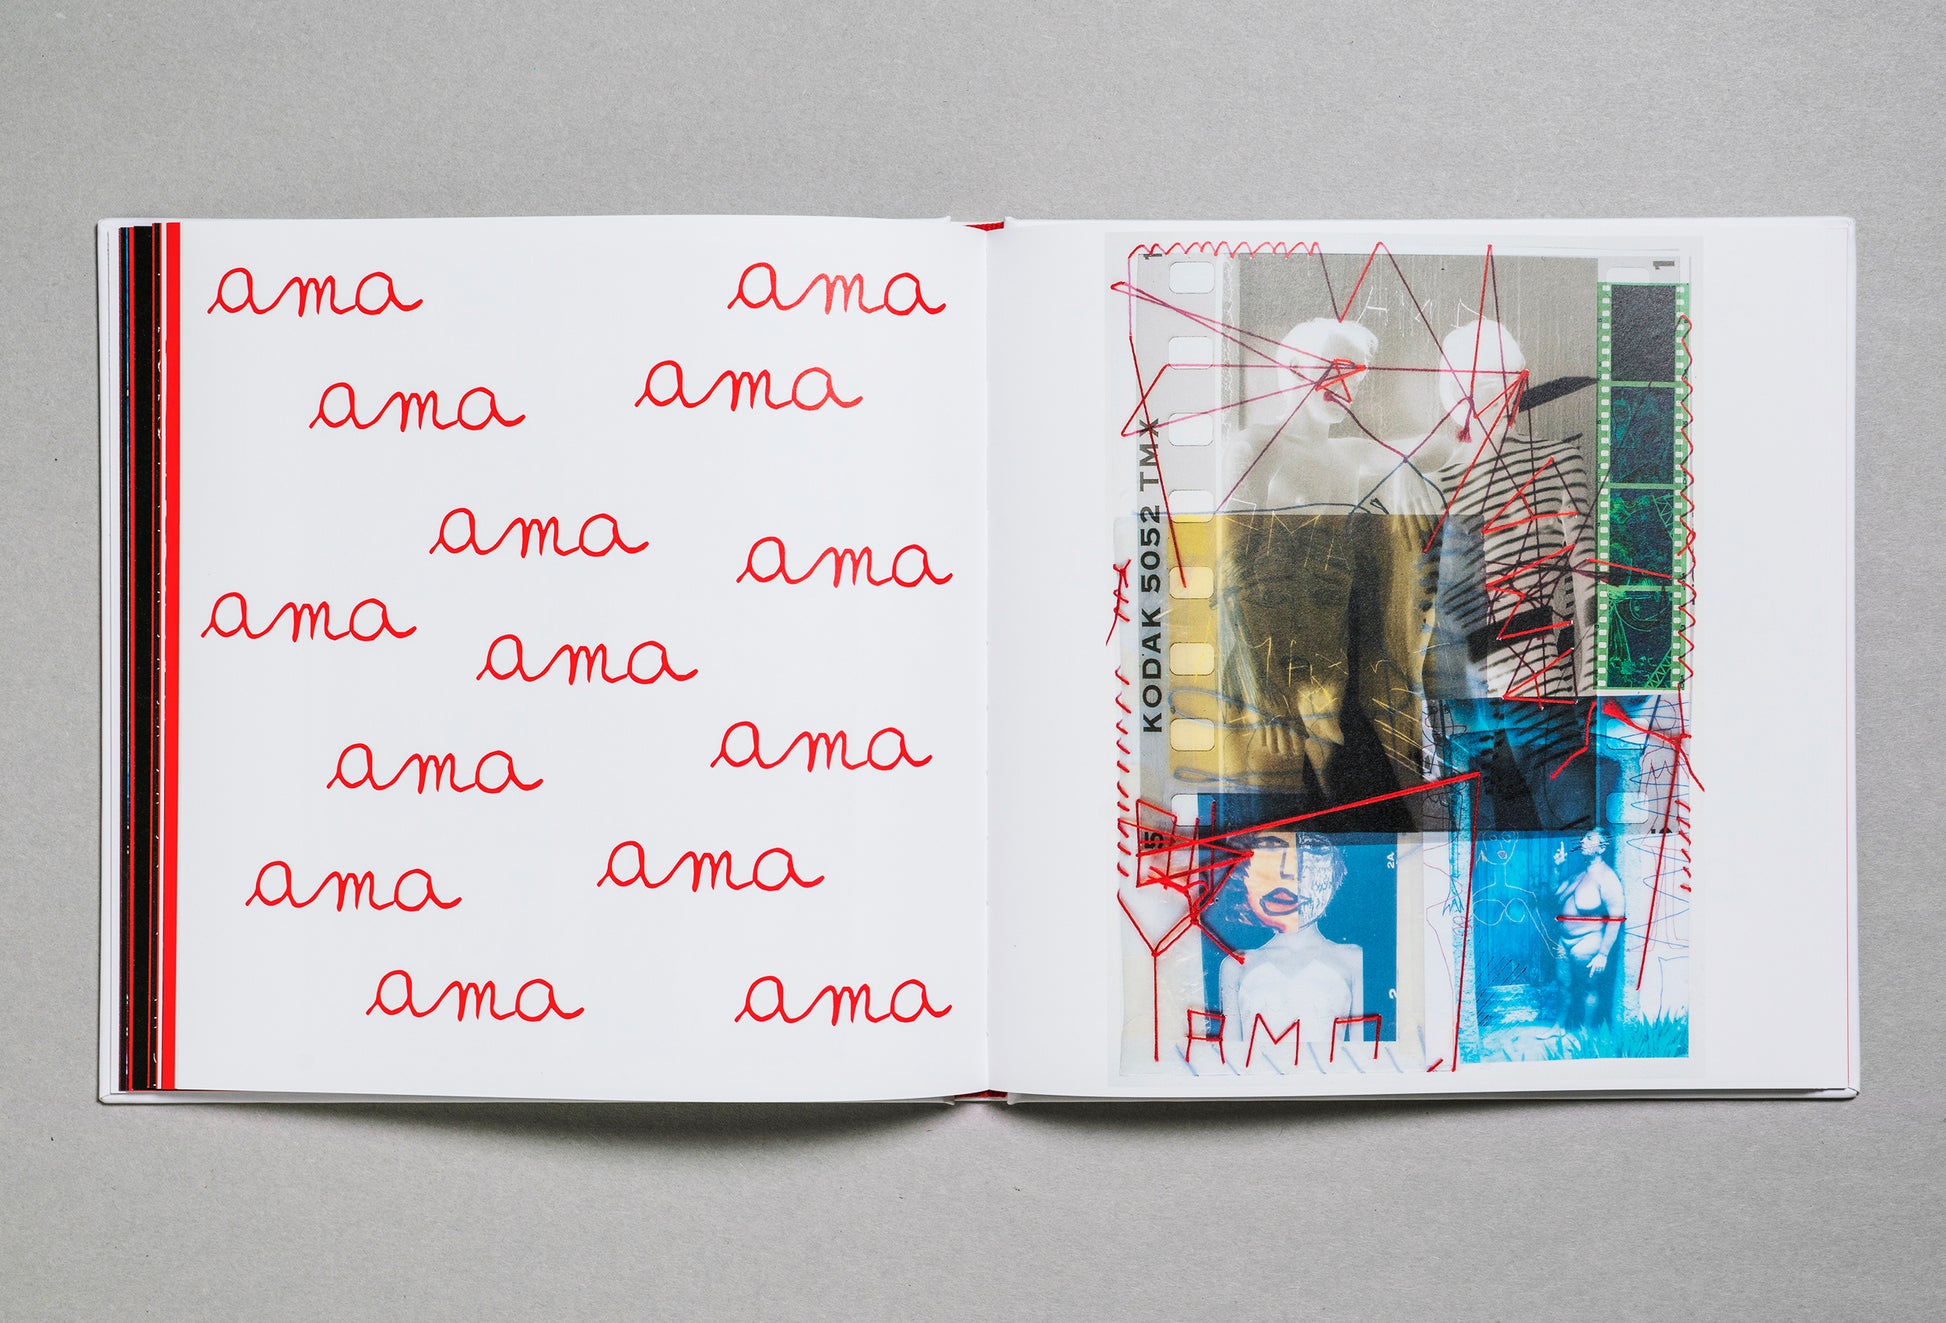 ama ama
ama ama
ama ama
ama ama
ama ama
ama ama
ama ama
1
1
KODAK 5052 TMX
2A
2
AMA